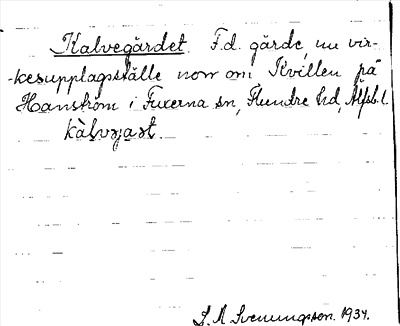 Kalvegärdet. F.d. gärde, nu vir-
-kesupplagsställe norr om Kvillen på
Hanström i Fuxerna sn, Flundre hd, Älfsb. l.
kàlvəjæst.
S. A. Svenungsson. 1934.